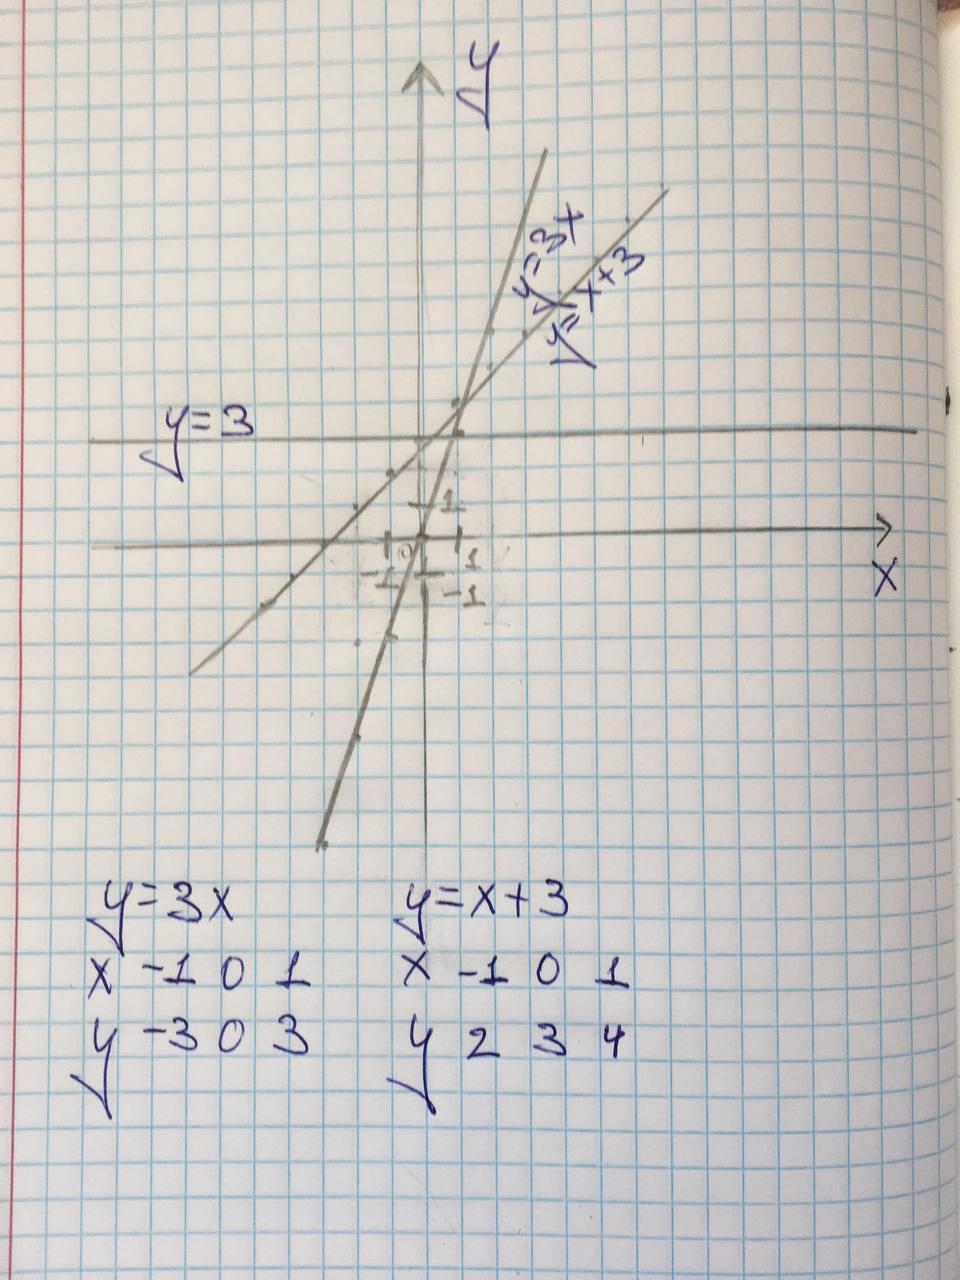 y
y=3x
y=x+3
y=3
1
0
-1 1
-1
x
y=3x y=x+3
x -1 0 1 x -1 0 1
y -3 0 3 y 2 3 4